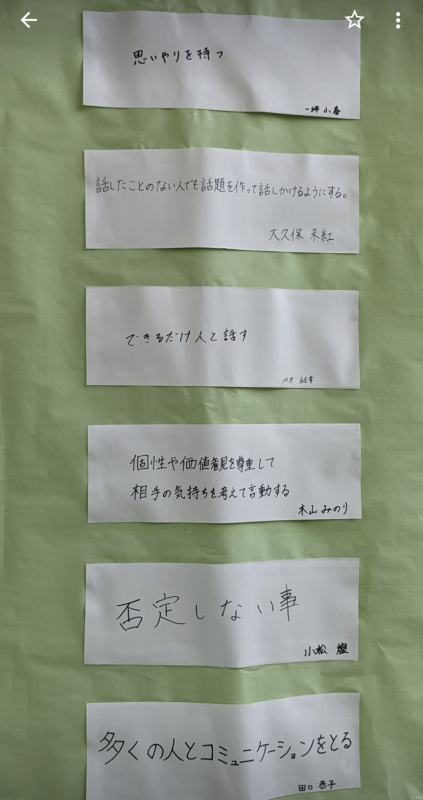 思いやりを持つ
一坪 小春
話したことのない人でも話題を作って話しかけるようにする。
大久保 未紅
できるだけ人と話す
個性や価値観を尊重して
相手の気持ちを考えて言動する
木山 みのり
否定しない事
小松 煌
多くの人とコミュニケーションをとる
田口 恭子